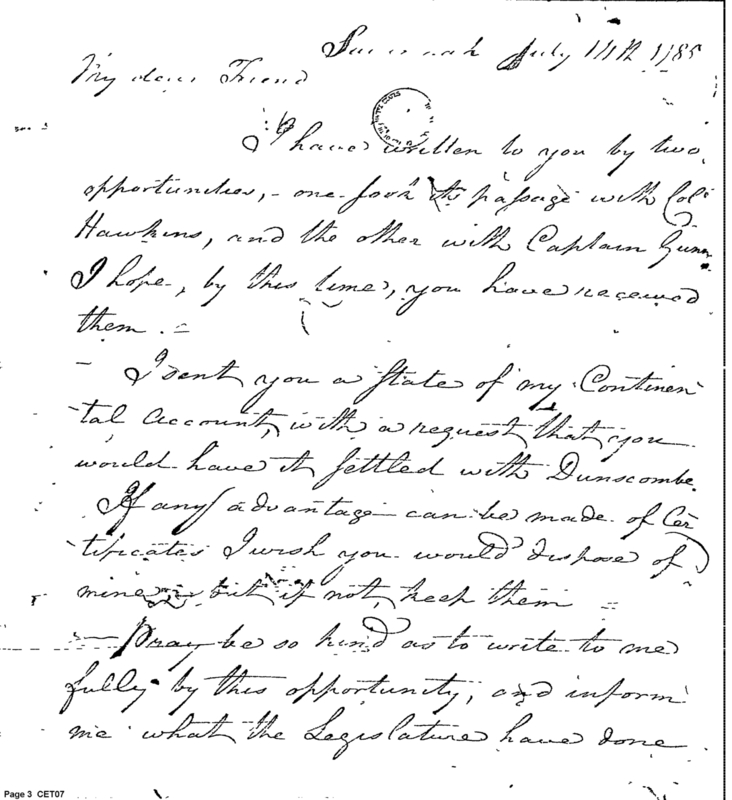 Savannah July 14th 1785
My dear Friend
I have written to you by two
opportunities, - one took its passage with Colo
Hawkins, and the other with Captain Gunn
I hope, by this time, you have received
them. -
I sent you a State of my Continen
tal Account, with a request that you
would have it settled with Dunscombe.
If any advantage can be made of Cer
tificates I wish you would dispose of
mine - but if not, keep them -
- Pray be so kind as to write to me
fully by this opportunity, and inform
me what the Legislature have done
Page 3 CET07